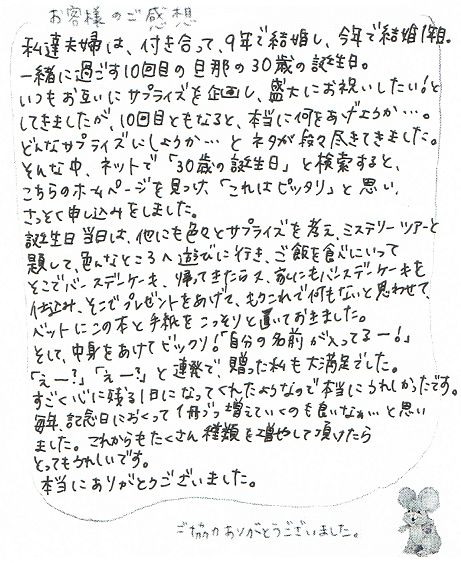 お客様のご感想
私達夫婦は、付き合って、9年で結婚し、今年で結婚1年目。
一緒に過ごす10回目の旦那の30歳の誕生日。
いつもお互いにサプライズを企画し、盛大にお祝いしたい！と
してきましたが、10回目ともなると、本当に何をあげようか…。
どんなサプライズにしようか…とネタが段々尽きてきました。
そんな中、ネットで「30歳の誕生日」と検索すると、
こちらのホームページを見つけ、「これはピッタリ」と思い、
さっそく申し込みをしました。
誕生日当日は、他にも色々とサプライズを考え、ミステリーツアーと
題して、色んなところへ遊びに行き、ご飯を食べにいって
そこでバースデーケーキ、帰ってきたら又、家にもバースデーケーキを
仕込み、そこでプレゼントをあげて、もうこれで何もないと思わせて、
ベットにこの本と手紙をこっそりと置いておきました。
そして、中身をあけてビックリ！「自分の名前が入ってるー！」
「えー？」「えー？」と連発で、贈った私も大満足でした。
すごく心に残る1日になってくれたようなので本当にうれしかったです。
毎年、記念日におくって1冊づつ増えていくのも良いなぁ…と思い
ました。これからもたくさん種類を増やして頂けたら
とってもうれしいです。
本当にありがとうございました。
ご協力ありがとうございました。